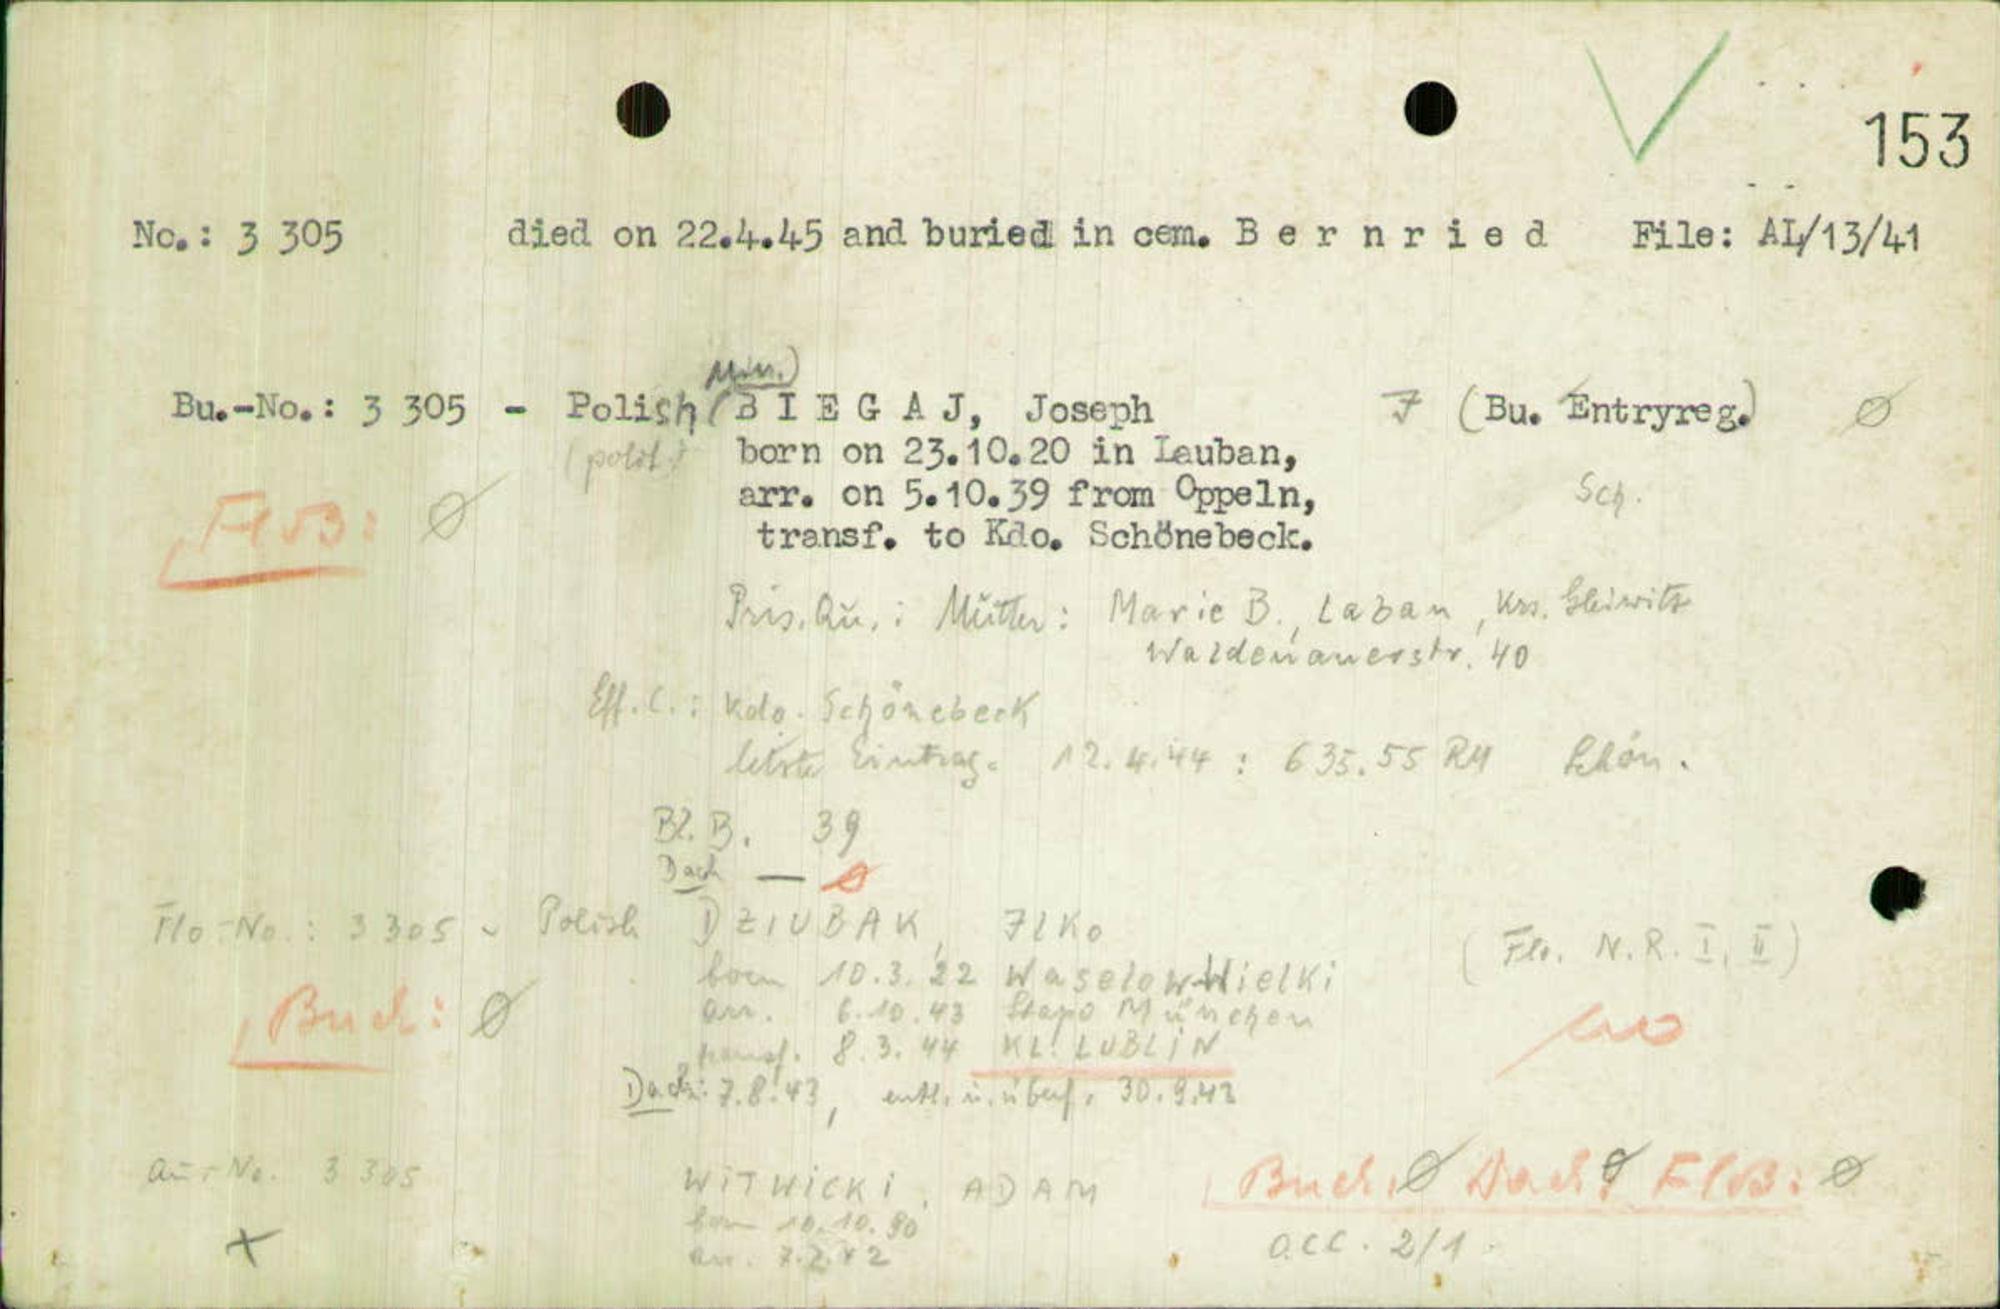 153
No.: 3 305 died on 22.4.45 and buried in cem. B e r n r i e d File: AL/13/41
Bu.-No.: 3 305 - Polish ( B I E G A J, Joseph (Bu. Entryreg.) Ø
(polit.) born on 23.10.20 in Lauban,
FlöB: Ø arr. on 5.10.39 from Oppeln, Sch.
transf. to Kdo. Schönebeck.
Pris. Qu.: Mutter: Marie B., Laban, Krs. Gleiwitz
Waldenauerstr. 40
Eff. C.: Kdo. Schönebeck
letzte Eintrag. 12.4.44 : 635.55 RM Schön.
Bl. B. 39
Dach — Ø
Flo-No.: 3305 - Polish DZIUBAK, Ilko (Flo. N.R. I, II)
born 10.3.22 Waselow Wielki
Buch: Ø arr. 6.10.43 Stapo München
transf. 8.3.44 KL. LUBLIN
Dach: 7.8.43, entl. u. überf. 30.9.43
Au.-No. 3305 WITWICKI, ADAM Buch: Ø Dach: Ø FlöB: Ø
born 10.10.90 OCC. 2/1
arr. 7.2.42